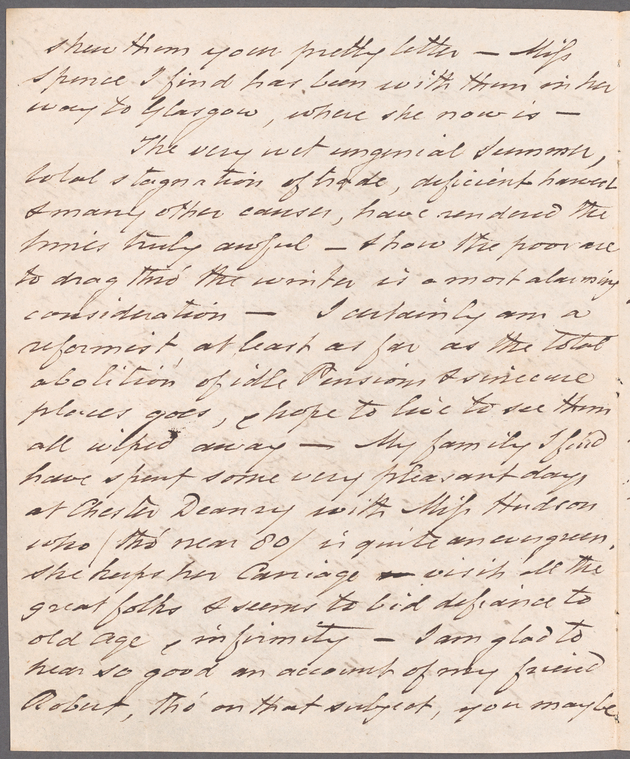 shew them your pretty letter — Miss
Spence I find has been with them in her
way to Glasgow, where she now is —
The very wet ungenial Summer,
total stagnation of trade, deficient harvest
& many other causes, have rendered the
times truly awful — & how the poor are
to drag thro' the winter is a most alarming
consideration — I certainly am a
reformist, at least as far as the total
abolition of idle Pensions & sinecure
places goes, & hope to live to see them
all wiped away — My family I find
have spent some very pleasant days,
at Chester Deanry with Miss Hudson
who (tho' near 80) is quite an evergreen.
She keeps her Carriage visits all the
great folks & seems to bid defiance to
old age & infirmity — I am glad to
hear so good an account of my friend
Robert, tho' on that subject, you may be